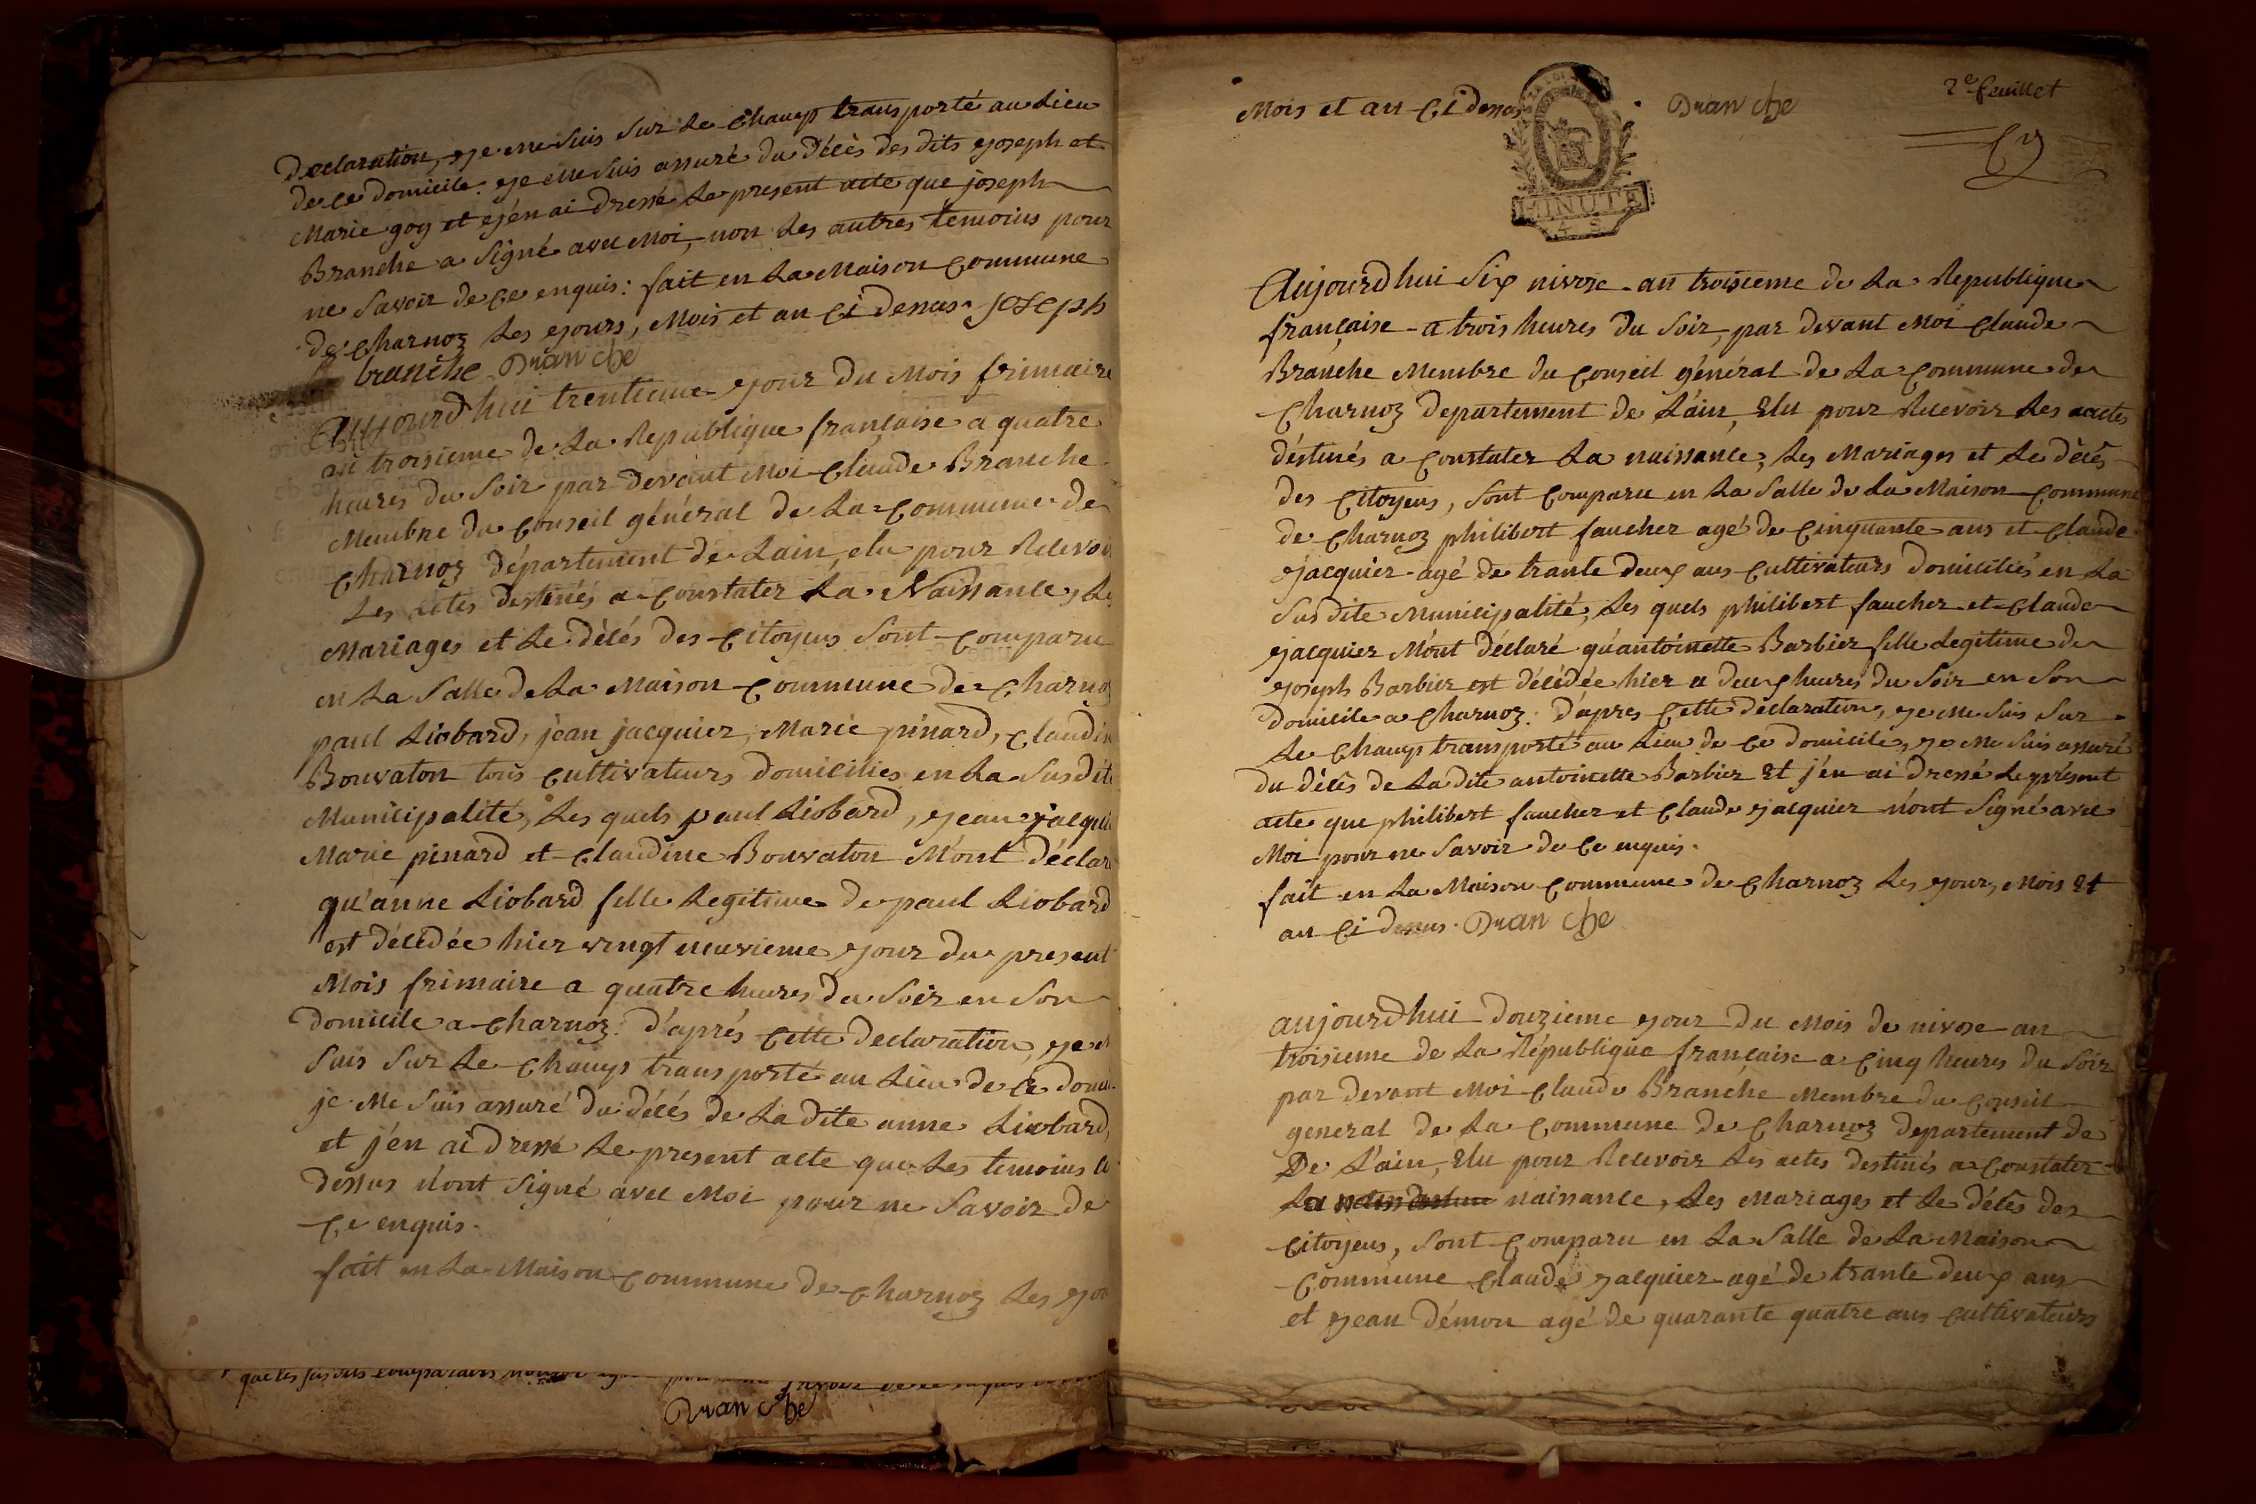 Declaration, je me suis sur le champ transporté au Lieu
de ce domicile. je me suis assuré du Décès des dits joseph et
Marie goy et j'en ai Dressé le present acte que joseph
Branche a Signé avec Moi, non les autres temoins pour
ne Savoir de ce enquis: fait en la Maison Commune
de Charnoz les jours, Mois et an ci dessus. joseph
branche Branche
Aujourd'hui trentieme jour du Mois frimaire
an troisieme de la Republique française a quatre
heures du Soir par devant Moi Claude Branche
Membre du Conseil général de la Commune de
Charnoz département de Lain, elu pour Recevoir
Les actes destinés a Constater La Naissance, Les
Mariages et Le décés des Citoyens Sont Comparu
en La Salle de La Maison Commune de Charnoz
paul Liobard, jean jacquier, Marie pinard, claudine
Bouvaton tous Cultivateurs domiciliés en La Susdite
Municipalité, Les quels paul Liobard, jean jacquier
Marie pinard et Claudine Bouvaton M'ont Déclaré
qu'anne Liobard fille Legitime de paul Liobard
est décédée hier vingt neuvieme jour du present
Mois frimaire a quatre heures du Soir en Son
domicile a Charnoz. d'aprés Cette declaration, je
Suis Sur Le Champ transporté au Lieu de Ce
je Me Suis assuré du décés de La dite anne Liobard,
et j'en ai Dressé Le present acte que Les temoins
dessus n'ont Signé avec Moi pour ne Savoir de
Ce enquis.
fait en La Maison Commune de Charnoz Les
que les susdits comparans
Branche
Mois et an Ci dessus Branche
2e feuillet
MINUTE
Aujourd'hui Six nivose an troisieme de La Republique
française a trois heures du Soir, par devant Moi Claude
Branche Membre du Conseil général de La Commune de
Charnoz departement de L'ain, Elu pour Recevoir Les actes
déstinés a Constater La naissance, Les Mariages et Le décès
des Citoyens, Sont Comparu en La Salle de La Maison Commune
de Charnoz philibert faucher agé de Cinquante ans et Claude
jacquier agé de trante deux ans Cultivateurs domiciliés en La
Sus dite Municipalité, Les quels philibert faucher et Claude
jacquier M'ont déclaré qu'antoinette Barbier fille Legitime de
joseph Barbier est décédée hier a deux heures du Soir en Son
domicile a Charnoz. d'apres Cette déclaration, je Me Suis Sur
Le Champ transporté au Lieu de Ce domicile, je Me Suis assuré
du décès de La dite antoinette Barbier Et j'en ai dressé Le présent
acte que philibert faucher et Claude jacquier n'ont Signé avec
Moi pour ne Savoir de Ce enquis.
fait en La Maison Commune de Charnoz Les jours, Mois Et
an Ci dessus. Branche
aujourd'hui douzieme jour du Mois de nivose an
troisieme de La République française a Cinq heures du Soir
par devant Moi Claude Branche Membre du Conseil
general de La Commune de Charnoz departement de
De L'ain, Elu pour Recevoir Les actes destinés a Constater
La naissance, Les Mariages et Le décès des
Citoyens, Sont Comparu en La Salle de La Maison
Commune Claude jacquier agé de trante deux ans
et jean démon agé de quarante quatre ans Cultivateurs